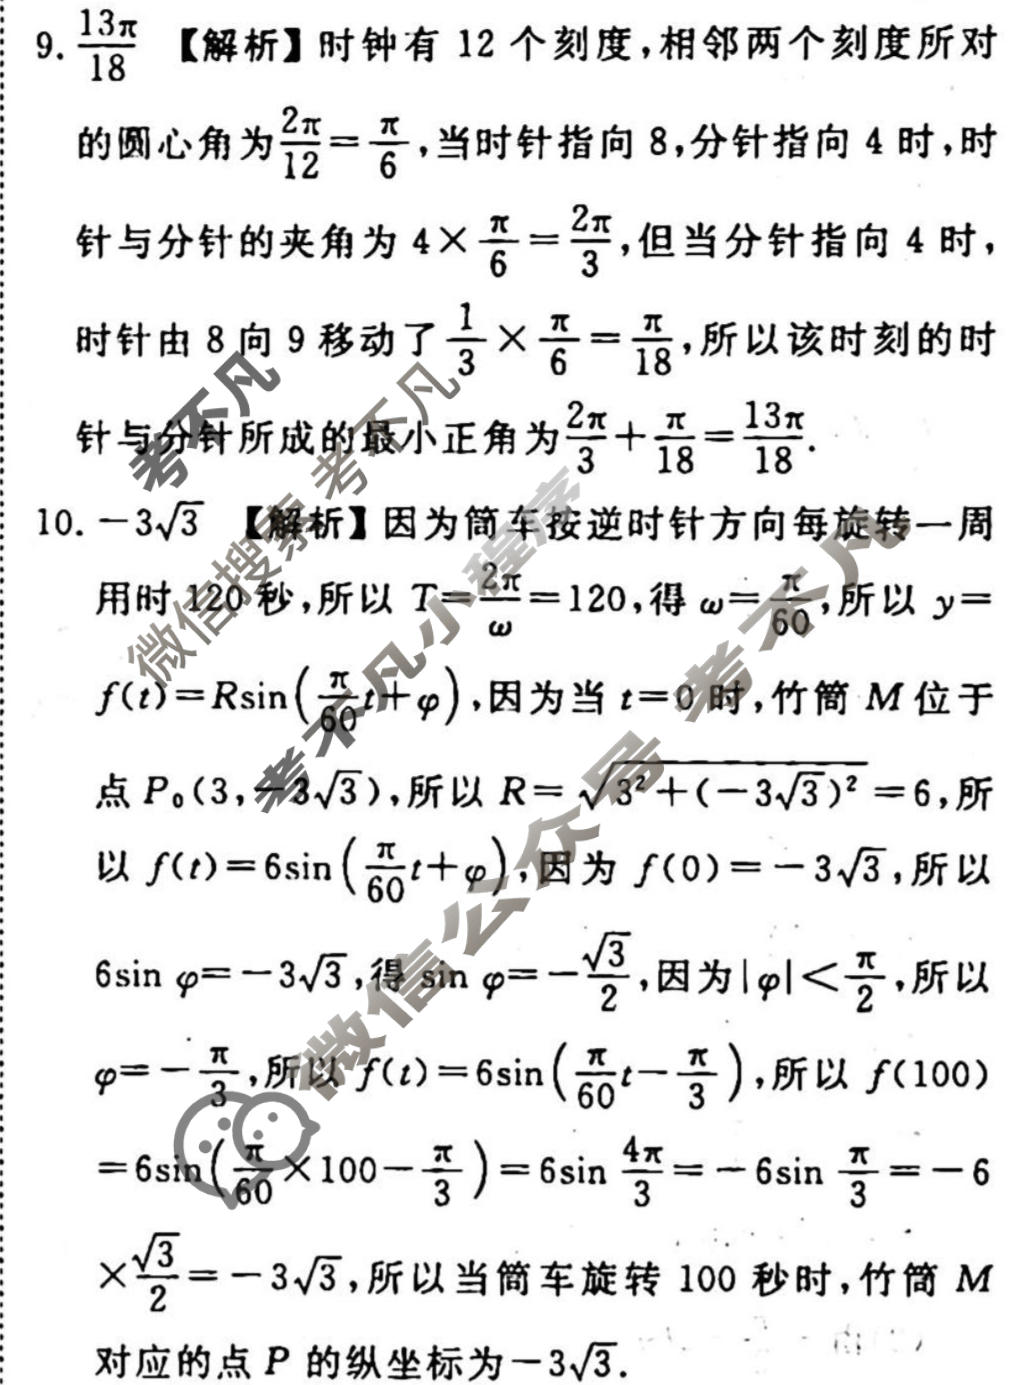 9. 13π/18 【解析】时钟有 12 个刻度,相邻两个刻度所对
的圆心角为2π/12=π/6,当时针指向 8,分针指向 4 时,时
针与分针的夹角为 4×π/6=2π/3,但当分针指向 4 时,
时针由 8 向 9 移动了1/3×π/6=π/18,所以该时刻的时
针与分针所成的最小正角为2π/3+π/18=13π/18.
10. -3√3 【解析】因为筒车按逆时针方向每旋转一周
用时 120 秒,所以 T=2π/ω=120,得 ω=π/60,所以 y=
f(t)=Rsin(π/60t+φ),因为当 t=0 时,竹筒 M 位于
点 P₀(3,-3√3),所以 R=√(3²+(-3√3)²)=6,所
以 f(t)=6sin(π/60t+φ),因为 f(0)=-3√3,所以
6sin φ=-3√3,得 sin φ=-√3/2,因为|φ|<π/2,所以
φ=-π/3,所以 f(t)=6sin(π/60t-π/3),所以 f(100)
=6sin(π/60×100-π/3)=6sin 4π/3=-6sin π/3=-6
×√3/2=-3√3,所以当筒车旋转 100 秒时,竹筒 M
对应的点 P 的纵坐标为-3√3.
微信搜索 考不凡
考不凡
考不凡小程序
微信公众号 考不凡